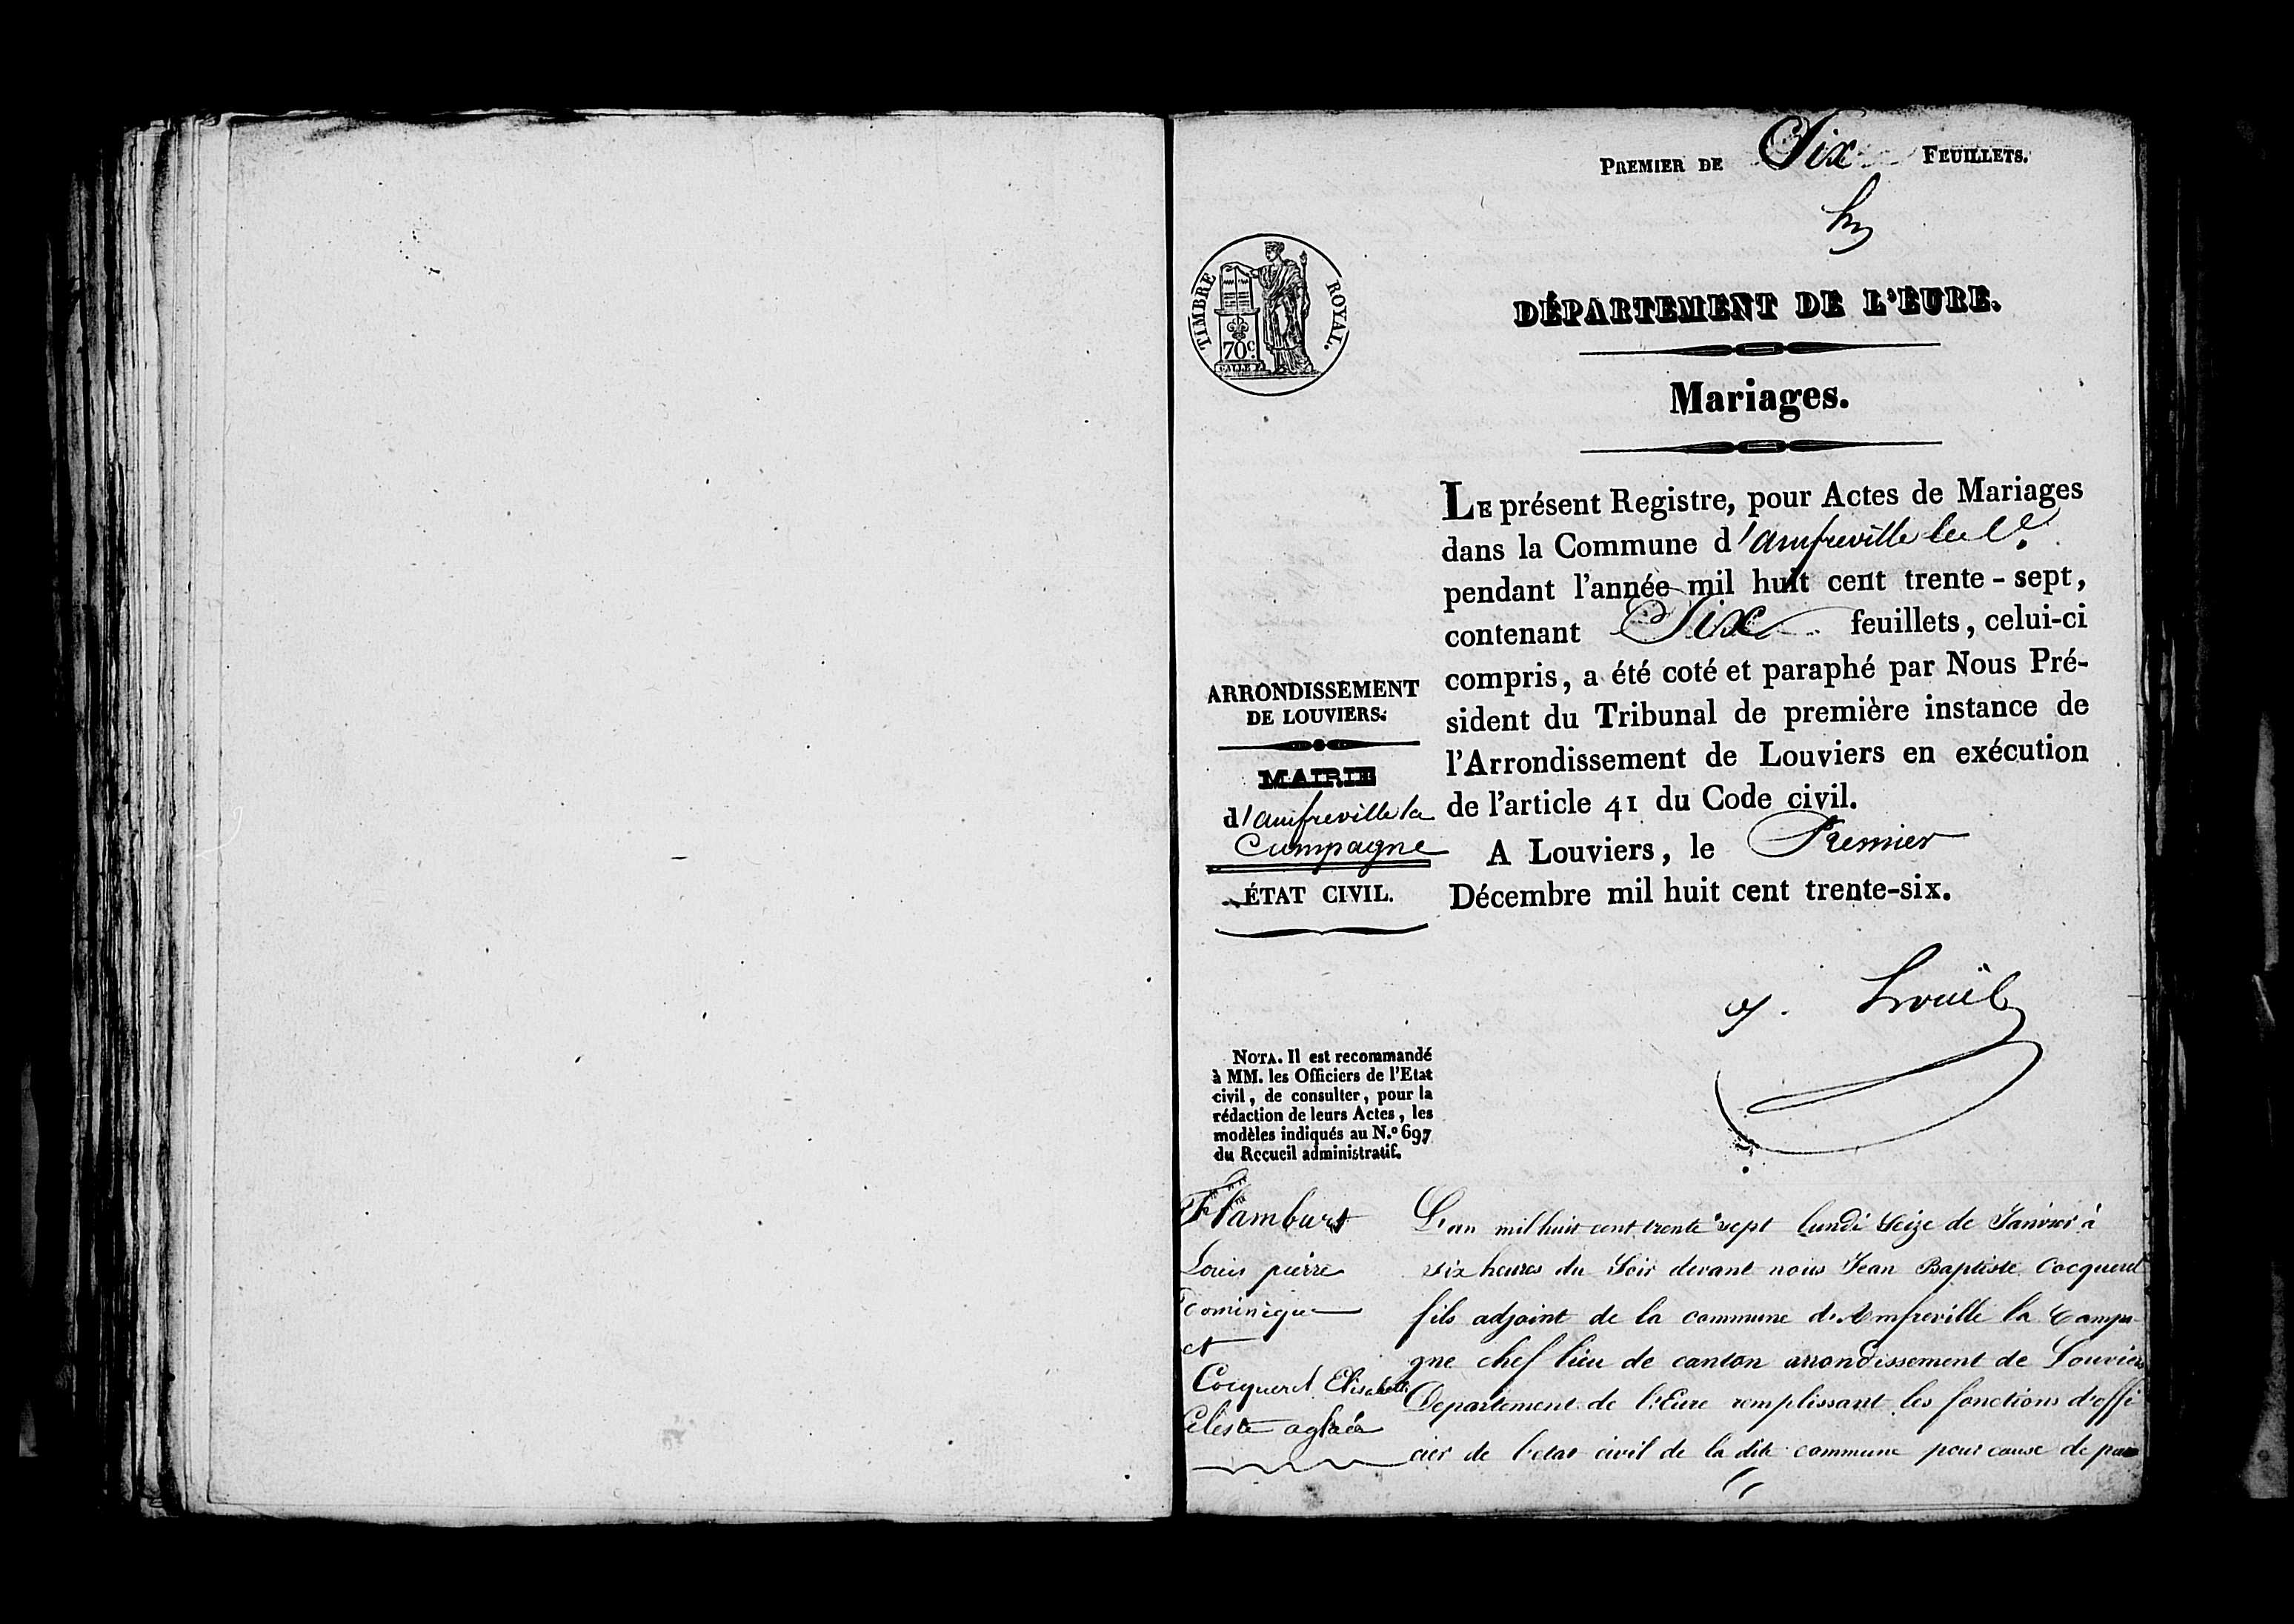 PREMIER DE Six FEUILLETS.
TIMBRE ROYAL.
70c
DÉPARTEMENT DE L'EURE.
Mariages.
LE présent Registre, pour Actes de Mariages
dans la Commune d'amfreville la C.e
pendant l'année mil huit cent trente-sept,
contenant Six feuillets, celui-ci
compris, a été coté et paraphé par Nous Pré-
sident du Tribunal de première instance de
l'Arrondissement de Louviers en exécution
de l'article 41 du Code civil.
A Louviers, le Premier
Décembre mil huit cent trente-six.
ARRONDISSEMENT
DE LOUVIERS.
MAIRIE
d'amfreville la
Campagne
ÉTAT CIVIL.
NOTA. Il est recommandé
à MM. les Officiers de l'Etat
civil, de consulter, pour la
rédaction de leurs Actes, les
modèles indiqués au N.º 697
du Recueil administratif.
Flambart
Louis pierre
Dominique
et
Cocquerel Elisabeth
Céleste aglaée
L'an mil huit cent trente sept lundi seize de Janvier à
six heures du Soir devant nous Jean Baptiste Cocquerel
fils adjoint de la commune d'Amfreville la Campa
gne chef lieu de canton arrondissement de Louviers
Departement de l'Eure remplissant les fonctions d'offi
cier de l'etat civil de la dite commune pour cause de